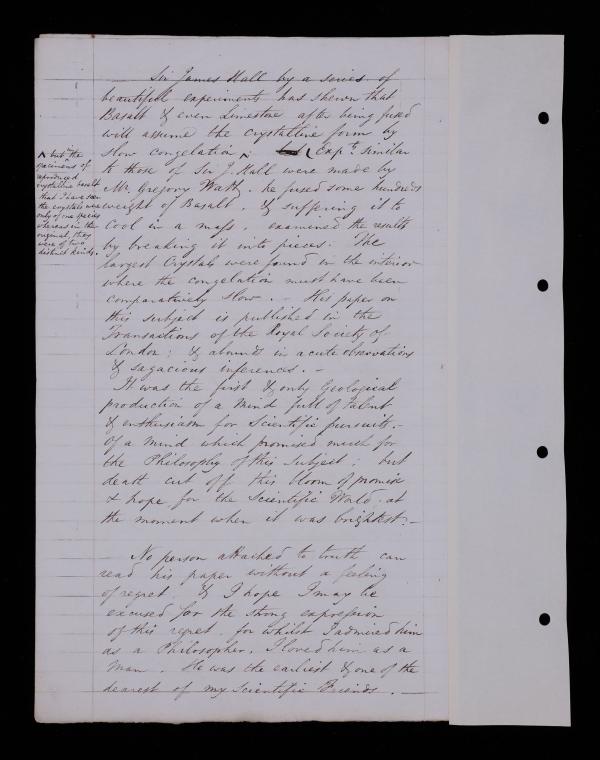 Sir James Hall by a series of
beautiful experiments has shewn that
Basalt & even Limestone after being fused
will assume the crystalline form by
slow congelation ; ^ Expts. similar
^ but in the
specimens of
reproduced
crystalline basalt
that I have seen
the crystals were
only of one species
whereas in the
original, they
were of two
distinct kinds.
to those of Sir J. Hall were made by
Mr. Gregory Watt, he fused some hundreds
weight of Basalt, & suffering it to
Cool in a mass, examined the results
by breaking it into pieces. The
largest Crystals were found in the interior
where the congelation must have been
comparatively slow. - His paper on
this subject is published in the
Transactions of the Royal Society of
London; & abounds in acute observations
& sagacious inferences. -
It was the first & only Geological
production of a mind full of talent
& enthusiasm for Scientific pursuits. -
Of a mind which promised much for
the Philosophy of this Subject; but
death cut off this bloom of promise
& hope for the Scientific World at
the moment when it was brightest. -
No person attached to truth can
read his paper without a feeling
of regret. & I hope I may be
excused for the strong expression
of this regret, for whilst I admired him
as a Philosopher, I loved him as a
Man. He was the earliest & one of the
dearest of my Scientific Friends. -